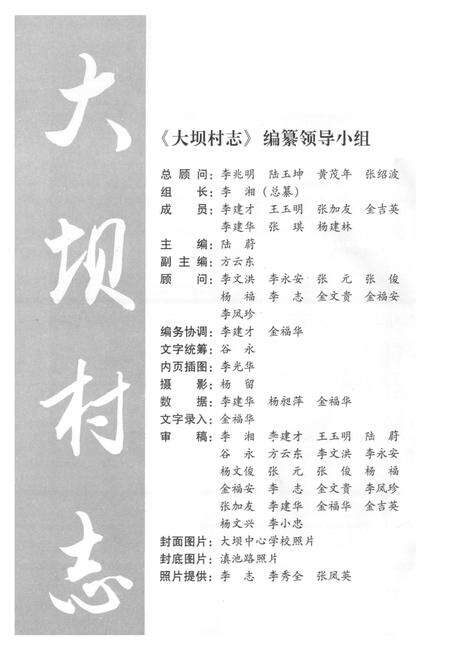 大坝村志
《大坝村志》编纂领导小组
总顾问：李兆明 陆玉坤 黄茂年 张绍波
组长：李湘（总纂）
成员：李建才 王玉明 张加友 金吉英
李建华 张琪 杨建林
主编：陆蔚
副主编：方云东
顾问：李文洪 李永安 张元 张俊
杨福 李志 金文贵 金福安
李凤珍
编务协调：李建才 金福华
文字统筹：谷永
内页插图：李光华
摄影：杨留
数据：李建华 杨昶萍 金福华
文字录入：金福华
审稿：李湘 李建才 王玉明 陆蔚
谷永 方云东 李文洪 李永安
杨文俊 张元 张俊 杨福
金福安 李志 金文贵 李凤珍
张加友 李建华 金福华 金吉英
杨文兴 李小忠
封面图片：大坝中心学校照片
封底图片：滇池路照片
照片提供：李志 李秀全 张凤英